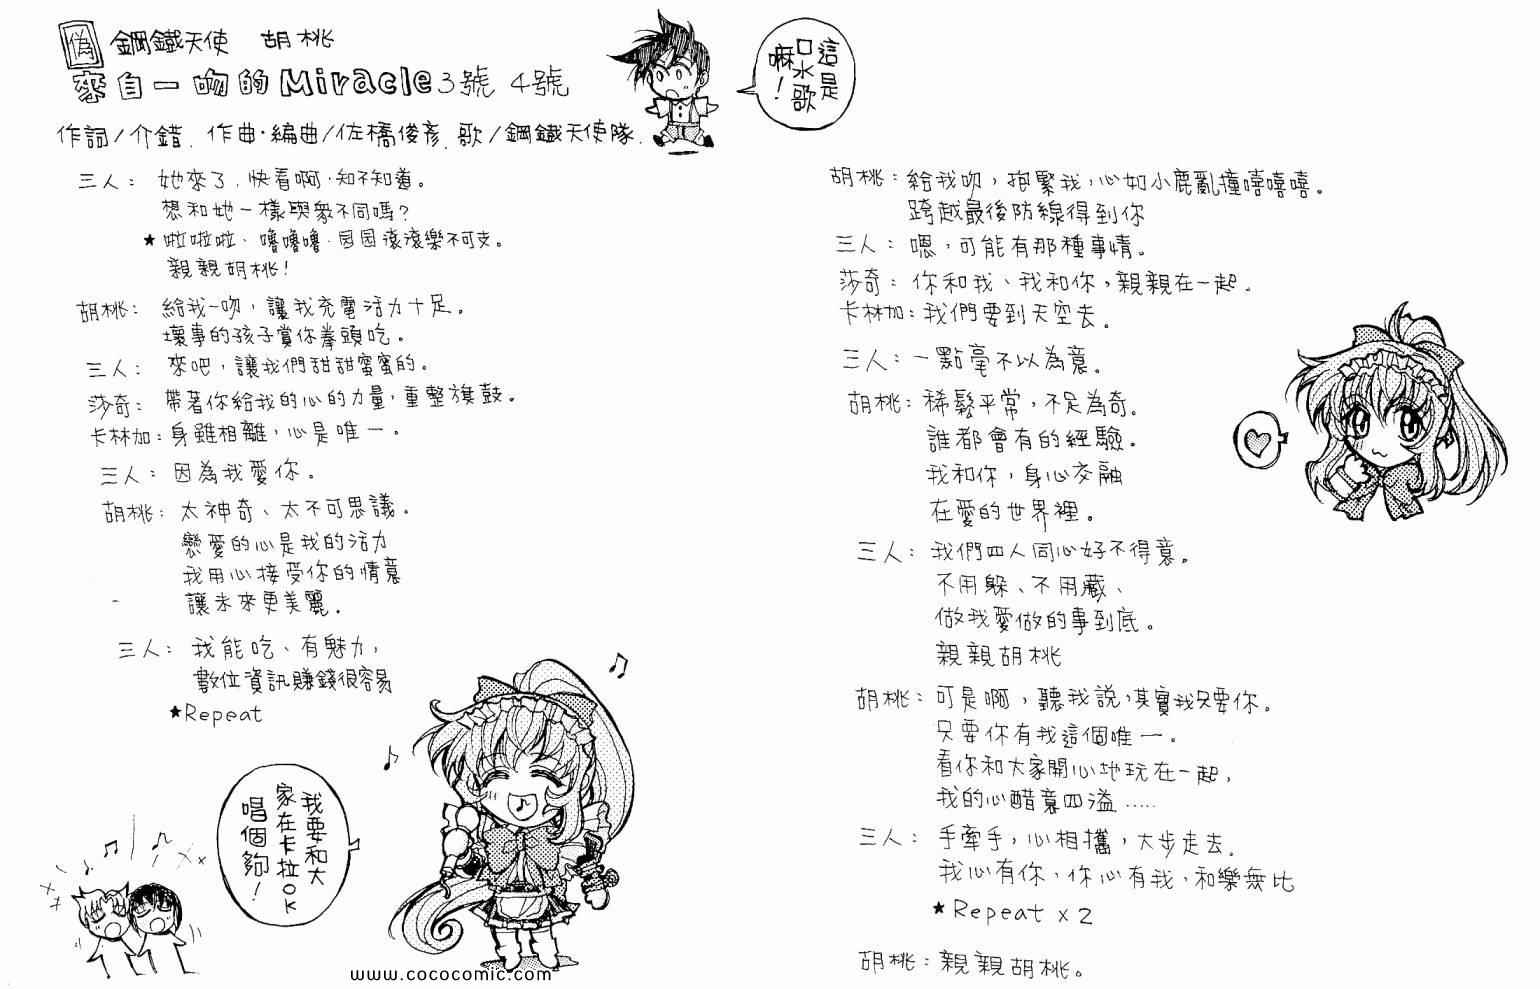 偽 鋼鐵天使 胡桃
來自一吻的Miracle 3號 4號
作詞/介錯. 作曲·編曲/佐橋俊彥. 歌/鋼鐵天使隊.
這是
口水歌
嘛!
三人: 她來了.快看啊.知不知道。
想和她一樣與眾不同嗎?
★啦啦啦、嚕嚕嚕.圓圓滾滾樂不可支。
親親胡桃!
胡桃: 給我一吻,讓我充電活力十足。
壞事的孩子賞你拳頭吃。
三人: 來吧,讓我們甜甜蜜蜜的。
莎奇: 帶著你給我的心的力量,重整旗鼓。
卡林加:身雖相離,心是唯一。
三人: 因為我愛你。
胡桃: 太神奇、太不可思議。
戀愛的心是我的活力
我用心接受你的情意
讓未來更美麗.
三人: 我能吃、有魅力,
數位資訊賺錢很容易
★Repeat
我要和大
家在卡拉OK
唱個夠!
www.cococomic.com
胡桃:給我吻,抱緊我,心如小鹿亂撞嘻嘻嘻。
跨越最後防線得到你
三人: 嗯,可能有那種事情。
莎奇: 你和我、我和你,親親在一起.
卡林加:我們要到天空去.
三人:一點毫不以為意。
胡桃:稀鬆平常,不足為奇。
誰都會有的經驗。
我和你,身心交融
在愛的世界裡。
三人: 我們四人同心好不得意。
不用躲、不用藏、
做我愛做的事到底。
親親胡桃
胡桃:可是啊,聽我說,其實我只要你。
只要你有我這個唯一。
看你和大家開心地玩在一起,
我的心醋意四溢.....
三人: 手牽手,心相攜,大步走去.
我心有你、你心有我、和樂無比
★Repeat x 2
胡桃:親親胡桃。